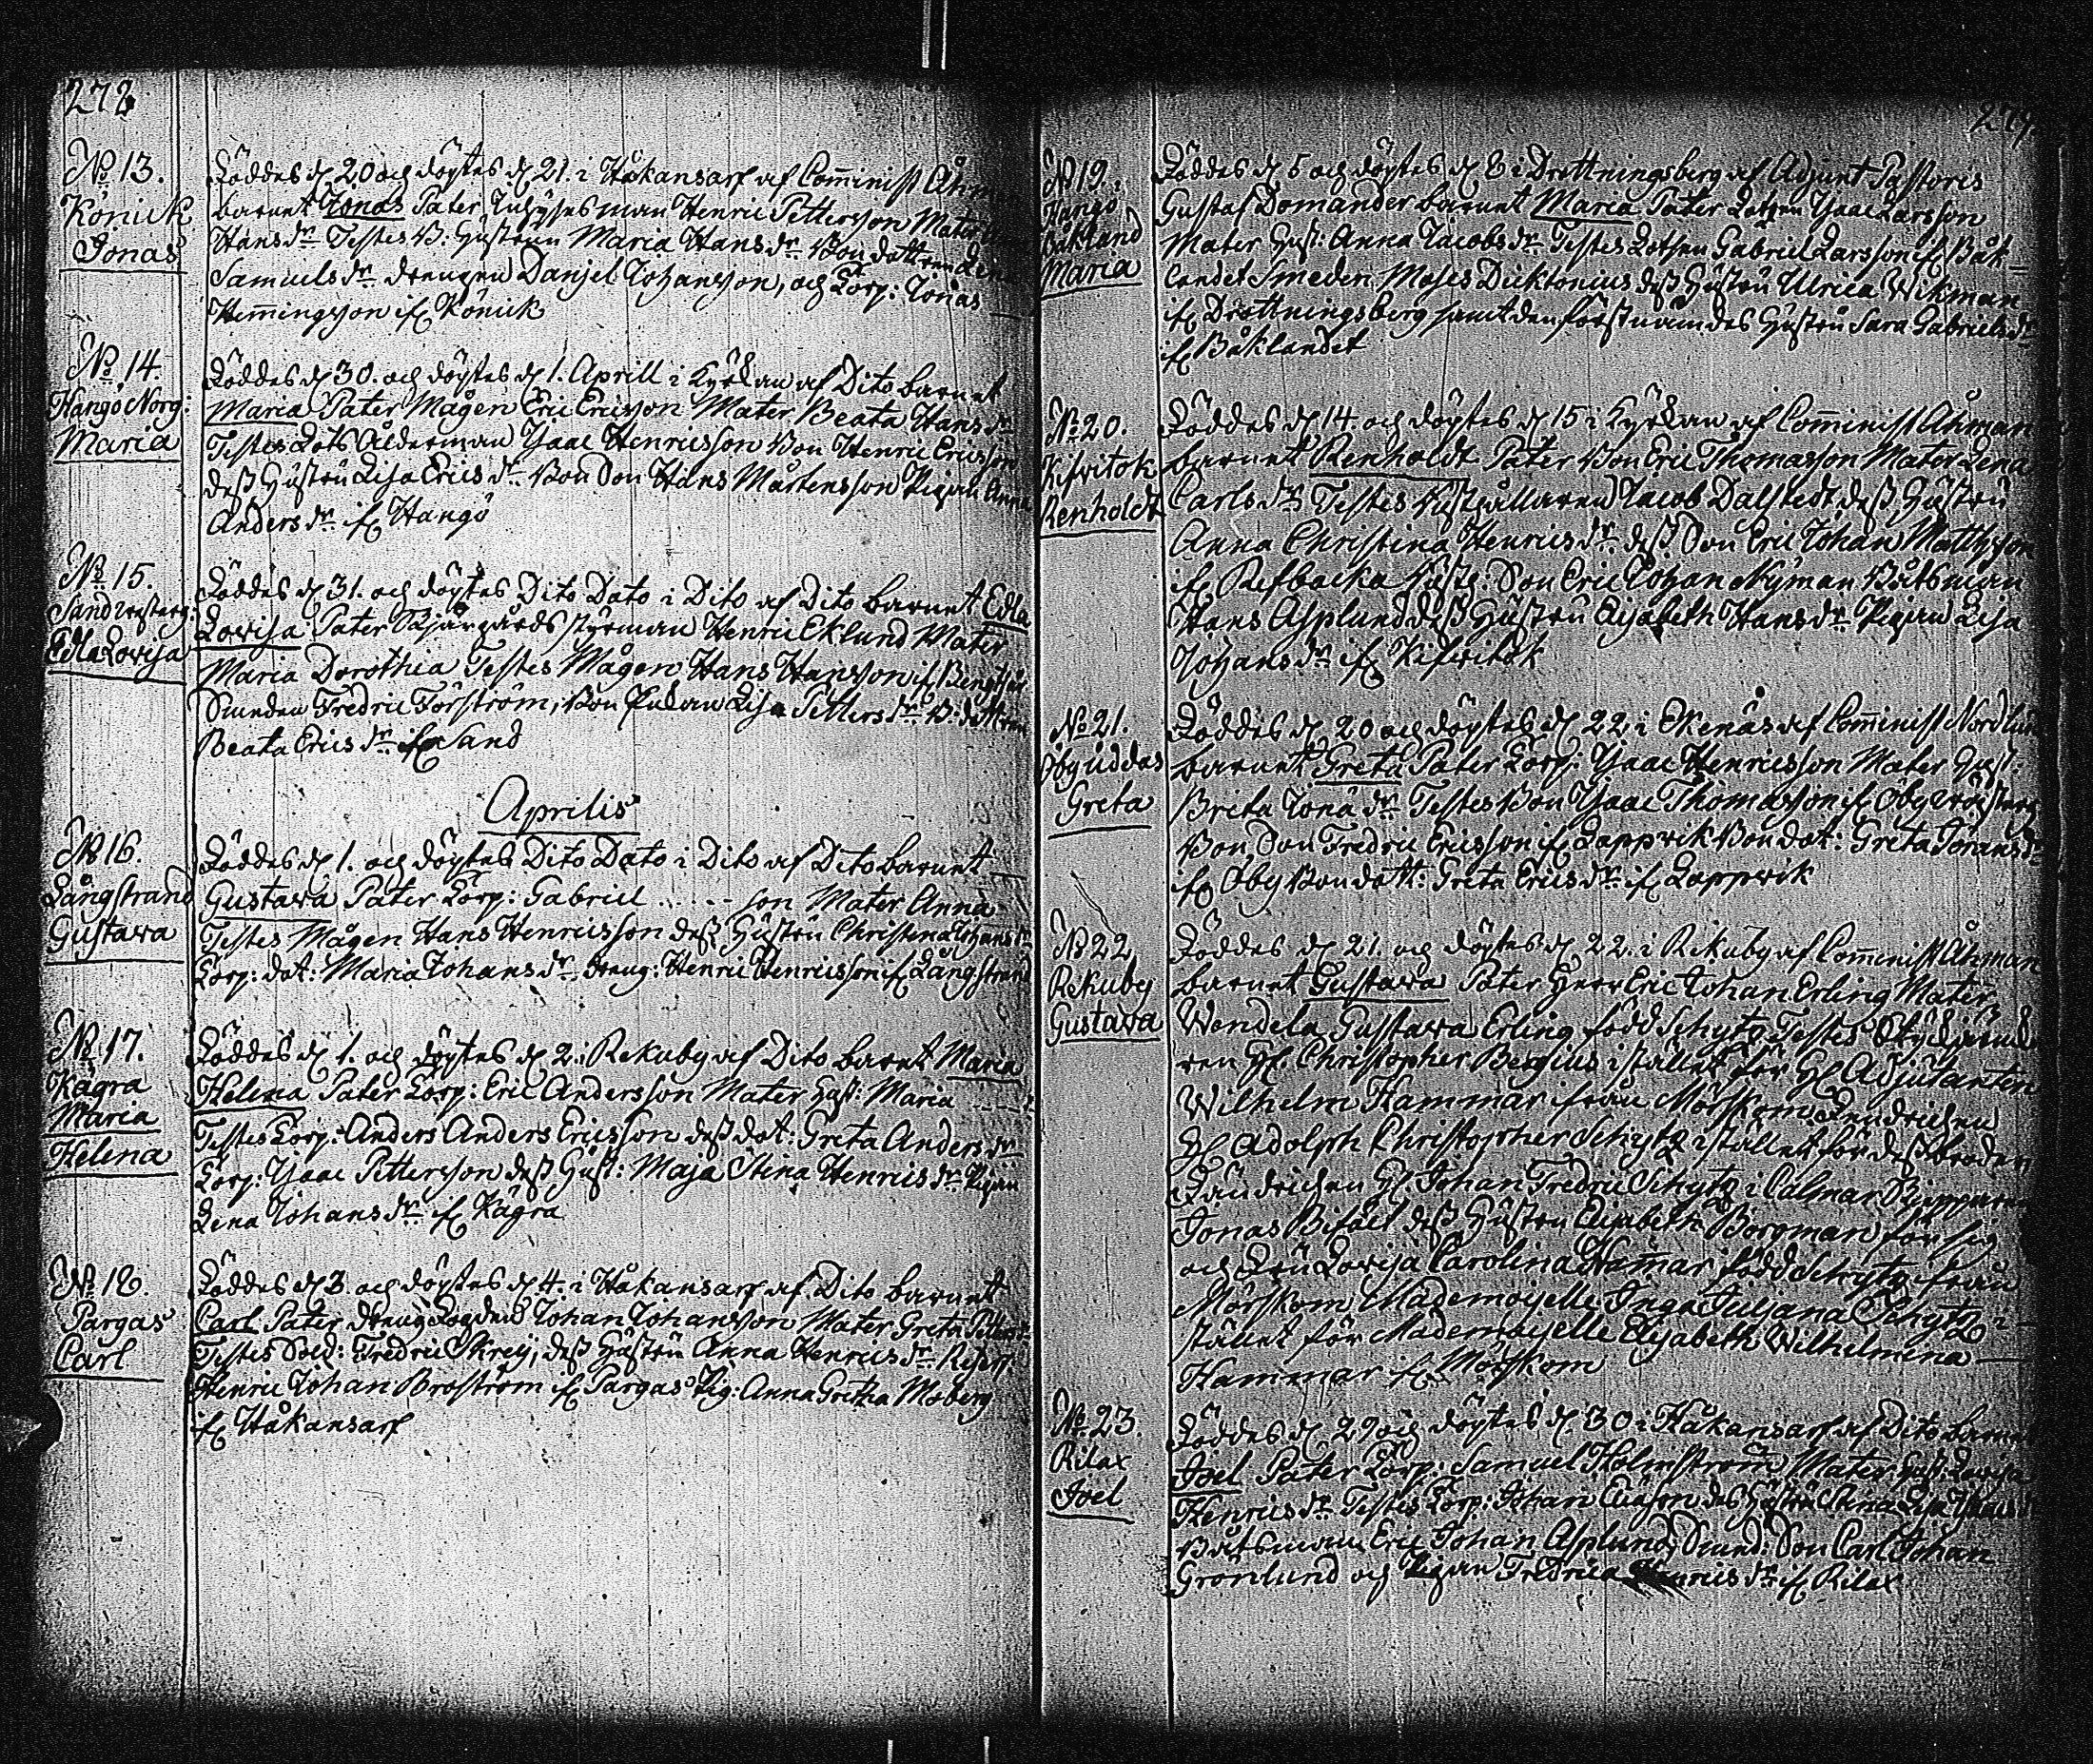 278
No 13.
Könick
Jonas
Föddes d 20 och döptes d 21. i Håkansarf af Comminist Åhman
barnet Jonas Pater Inhysesman Henric Pettersson Mater
Hansdr Testes B: Hustrun Maria Hansdr Bondottren Lena
Samuelsdr drengen Danjel Johansson, och Torp: Jonas
Hemmingsson if Könick
No 14.
Hangö Norg:
Maria
Föddes d 30. och döptes d 1. Aprill i Kyrkan af Dito barnet
Maria Pater Mågen Eric Ericsson Mater Beata Hansdr
Testes Lots Ålderman Isaac Henricsson Bon Henric Ericsson
dess Hustru Lisa Ericsdr Bon Son Hans Mårtensson Pigan Anna
Andersdr if Hangö
No 15.
Edla Lovisa
Föddes d 31. och döptes Dito Dato i Dito af Dito barnet Edla
Lovisa Pater Skjärgårds styrman Henric Eklund Mater
Maria Dorothia Testes Mågen Hans Hansson if
Smeden Fredric Forström, Bon Enkan Lisa Pettersdr B: dottren
Beata Ericsdr if Sand
Aprilis
No 16.
Långstrand
Gustava
Föddes d 1. och döptes Dito Dato i Dito af Dito barnet
Gustava Pater Torp: Gabriel ..... son Mater Anna
Testes Mågen Hans Henricsson dess Hustru Christina Johansdr
Torp: dot: Maria Johansdr dreng: Henric Henricsson if Långstrand
No 17.
Kågra
Maria
Helena
Föddes d 1. och döptes d 2. i Rekuby af Dito barnet Maria
Helena Pater Torp: Eric Andersson Mater Hust: Maria ......
Testes Torp: Anders Anders Ericsson dess dot: Greta Andersdr
Torp: Isaac Pettersson dess Hust: Maja Stina Henricsdr Pigan
Lena Johansdr if Kågra
No 18.
Pargas
Carl
Föddes d 3. och döptes d 4. i Håkansarf af Dito barnet
Carl Pater dreng Johan Johansson Mater Greta Pettersdr
Testes Sold: Fredric Skreij, dess Hustru Anna Henricsdr
Henric Johan Broström if Pargas Pig: Anna Gretha Moberg
if Håkansarf
279.
No 19.
Hangö
Båkland
Maria
Föddes d 5 och döptes d 8 i Drottningsberg af Adjunct Pastoris
Gustaf Domander barnet Maria Pater Lotzen Isaac Larsson
Mater Hust: Anna Jacobsdr Testes Lotsen Gabriel Larsson if Båk-
landet Smeden Moses Dicktonius dess Hustru Ulrica Wikman
if Drottningsberg samt den förstnämdes Hustru Sara Gabrielsdr
if Båklandet
No 20.
Kifvitok
Renholdt
Föddes d 14. och döptes d 15 i Kyrkan af Comminist Åhman
barnet Renholdt Pater Bon Eric Thomasson Mater Lena
Carlsdr Testes Rusthållaren Jacob Dalstedt dess Hustru
Anna Christina Henricsdr dess Son Eric Johan Mattsson
if Refbacka Rustg: Son Eric Johan Nyman Båtsman
Hans Asplund dess Hustru Elisabeth Hansdr Pigan Lisa
Johansdr if Kifvitok
No 21.
Öby uddas
Greta
Föddes d 20 och döptes d 22. i Ekenäs af Comminist Nordlund
barnet Greta Pater Torp: Isaac Henricsson Mater Hust:
Brita Jonädr Testes Bon Isaac Thomasson if Öby
Bon Son Fredric Ericsson if Lappvik Bondot: Greta Joransdr
if Öby Bondott: Greta Ericsdr if Lappvik
No 22
Rekuby
Gustava
Föddes d 21. och döptes d 22. i Rekuby af Comminist Åhman
barnet Gustava Pater Herr Eric Johan Erling Mater
Wendela Gustava Erling född Schytz Testes
ren H. Christopher Bergius i stället för H Adjutanten
Wilhelm Hammar ifrån Mörskom Fendrichen
H Adolph Christopher Schytz i stället för dess broder
Fändrichen H Johan Fredric Schytz i Calmar Skepparen
Jonas dess Hustru Elisabeth Borgman för sig
och Fru Lovisa Carolina Hamar född Schytz från
Mörskom Mademoiselle Inga Juljana Schytz i
stället för Mademoiselle Elisabeth Wilhelmina
Hammar if Mörskom
No 23.
Rilax
Joel
Föddes d 29 och döptes d. 30 i Håkansarf af Dito barnet
Joel Pater Torp: Samuel Holmström Mater Hust: Lovisa
Henricsdr Testes Torp: Johan Ericson des Hustru Stina Lisa
Båtsman Eric Johan Asplund, Smed: Son Carl Johan
Grönlund och Pigan Fredrica Henricsdr if Rilax